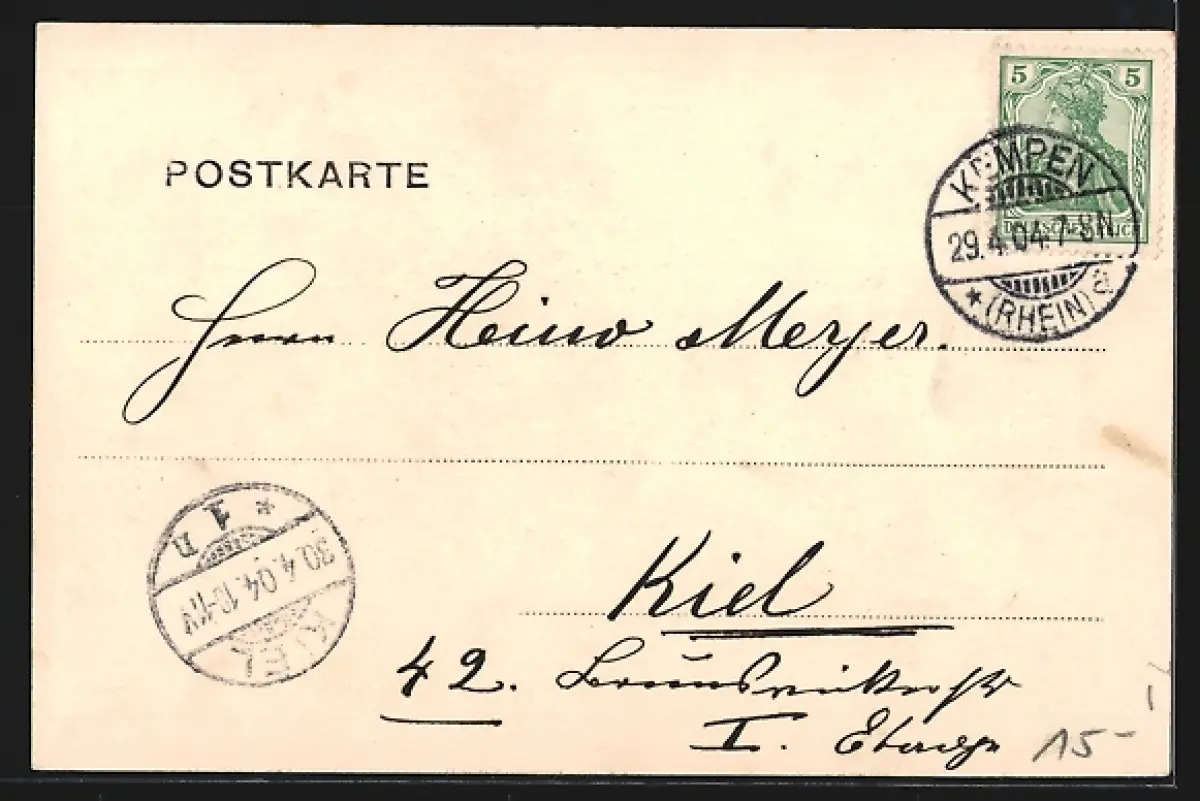 5 5
DEUTSCHES REICH
POSTKARTE
KEMPEN
29.4.04.7-8N
* (RHEIN) a
Herrn Heino Meyer.
* 1 n
30.4.04.10-11V
KIEL
Kiel
42. Brunswikerstr
I. Etage
15-